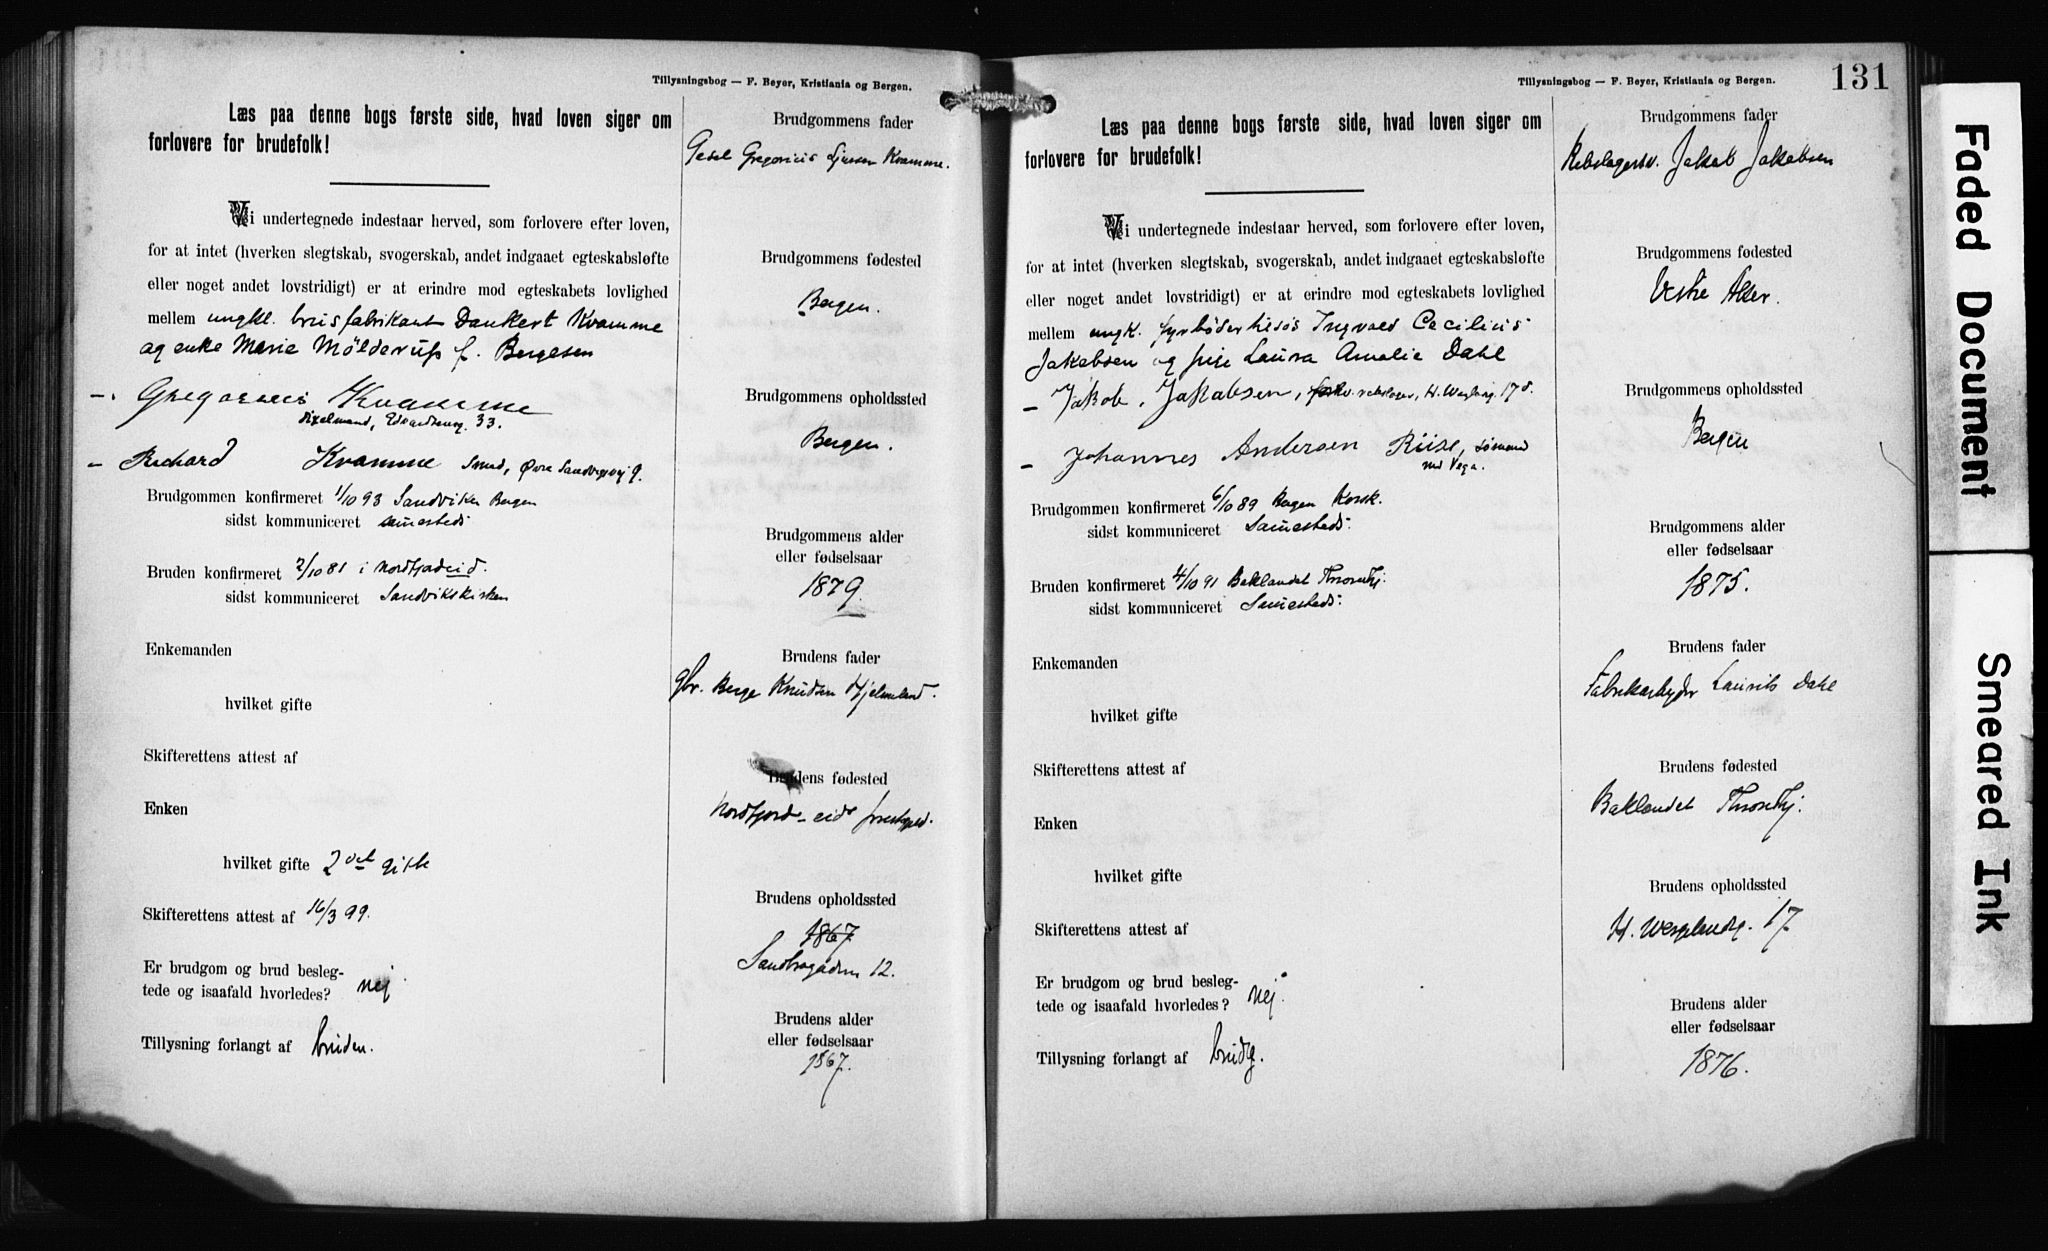 Tillysningsbog — F. Beyer, Kristiania og Bergen.
Læs paa denne bogs første side, hvad loven siger om
forlovere for brudefolk!
Vi undertegnede indestaar herved, som forlovere efter loven,
for at intet (hverken slegtskab, svogerskab, andet indgaaet egteskabsløfte
eller noget andet lovstridigt) er at erindre mod egteskabets lovlighed
mellem ungkl. brusfabrikant Dankert Kvamme
og enke Marie Mölderup f. Bergesen
Gregorius Kvamme
Edvardseng. 33.
Richard Kvamme Smed, Øvre Sandvigsvej 9.
Brudgommen konfirmeret 1/10 93 Sandviken Bergen
sidst kommuniceret samesteds
Bruden konfirmeret 2/10 81 i Nordfjordeid.
sidst kommuniceret Sandvikskirken
Enkemanden
hvilket gifte
Skifterettens attest af
Enken
hvilket gifte 2det gifte
Skifterettens attest af 16/3 99.
Er brudgom og brud besleg-
tede og isaafald hvorledes? nej
Tillysning forlangt af bruden.
Brudgommens fader
Gregorius Kvamme.
Brudgommens fødested
Bergen.
Brudgommens opholdssted
Bergen.
Brudgommens alder
eller fødselsaar
1879.
Brudens fader
gbr. Berge Knudsen Hjelmeland.
Brudens fødested
Nordfjord-eid prestegjeld.
Brudens opholdssted
1867
Sandbrogaden 12.
Brudens alder
eller fødselsaar
1867.
Tillysningsbog — F. Beyer, Kristiania og Bergen.
131
Læs paa denne bogs første side, hvad loven siger om
forlovere for brudefolk!
Vi undertegnede indestaar herved, som forlovere efter loven,
for at intet (hverken slegtskab, svogerskab, andet indgaaet egteskabsløfte
eller noget andet lovstridigt) er at erindre mod egteskabets lovlighed
mellem ungk. fyrbøder Ingvald Cecilius
Jakobsen og pige Laura Amalie Dahl
Jakob Jakobsen, rebslager, H. Werglandsg. 17
Johannes Andersen Riise, sømand
ved Vega.
Brudgommen konfirmeret 6/10 89 Bergen Korsk.
sidst kommuniceret Samesteds.
Bruden konfirmeret 4/10 91 Baklandet Throndhj.
sidst kommuniceret Samesteds.
Enkemanden
hvilket gifte
Skifterettens attest af
Enken
hvilket gifte
Skifterettens attest af
Er brudgom og brud besleg-
tede og isaafald hvorledes? nej.
Tillysning forlangt af brudg.
Brudgommens fader
Rebslagersv. Jakob Jakobsen
Brudgommens fødested
Vestre Aker.
Brudgommens opholdssted
Bergen
Brudgommens alder
eller fødselsaar
1875.
Brudens fader
Fabrikarbejder Laurits Dahl
Brudens fødested
Baklandet Throndhj.
Brudens opholdssted
H. Werglandsg. 17.
Brudens alder
eller fødselsaar
1876.
Faded Document
Smeared Ink